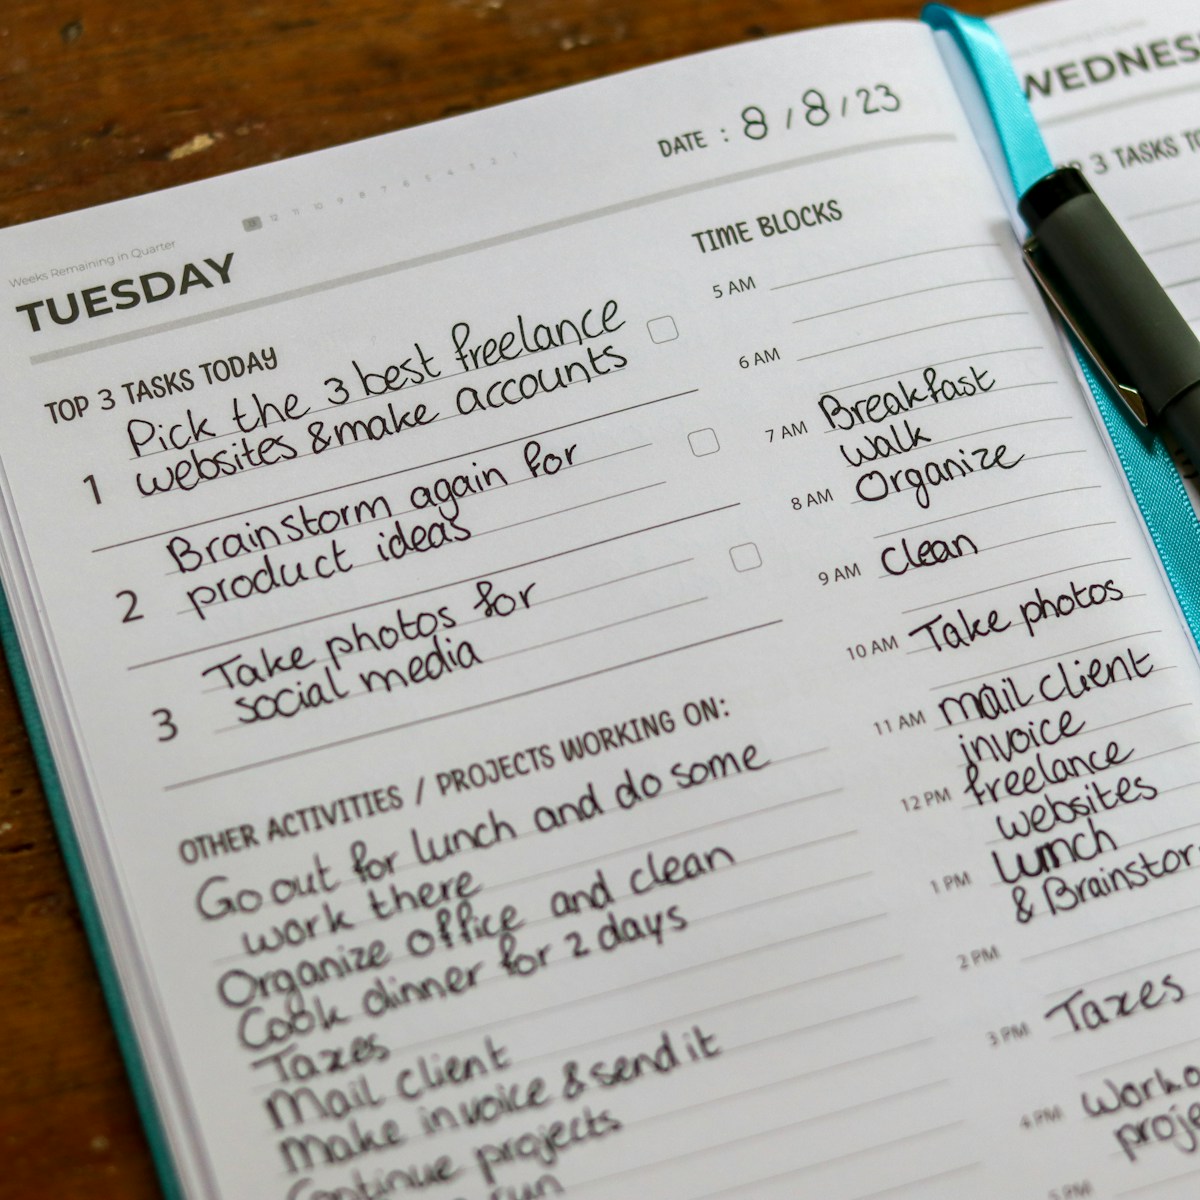 Weeks Remaining in Quarter
13 12 11 10 9 8 7 6 5 4 3 2 1
TUESDAY
DATE : 8 / 8 / 23
TOP 3 TASKS TODAY
Pick the 3 best freelance
1 websites & make accounts
Brainstorm again for
2 product ideas
Take photos for
3 social media
OTHER ACTIVITIES / PROJECTS WORKING ON:
Go out for lunch and do some
work there
Organize office and clean
Cook dinner for 2 days
Taxes
Mail client
Make invoice & send it
Continue projects
run
TIME BLOCKS
5 AM
6 AM
7 AM Breakfast
walk
8 AM Organize
9 AM Clean
10 AM Take photos
11 AM mail client
invoice
12 PM freelance
websites
1 PM Lunch
& Brainstor
2 PM
3 PM Taxes
4 PM Worko
proje
5 PM
WEDNES
3 TASKS TO